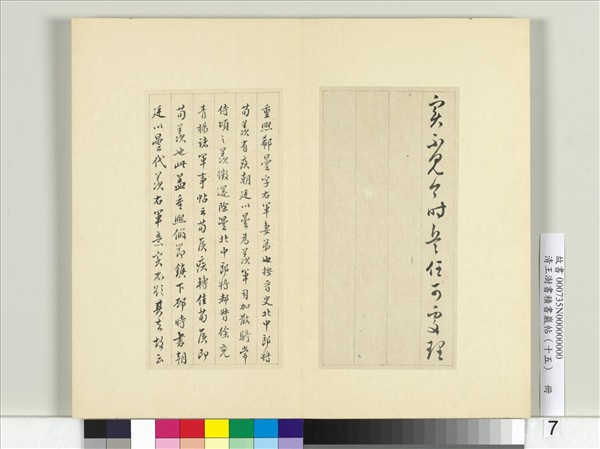 實不見今時兵任可處理
重熙郗曇字右軍妻弟也按晉史北中郎將
荀羨有疾朝廷以曇為羨軍司加散騎常
侍頃之羨徵還除曇北中郎將都督徐兗
青楊諸軍事帖云荀侯疾轉佳荀侯即
荀羨也此蓋重熙假節鎮下邳時書朝
廷以曇代羨右軍意實不欲其去故云
故書 000735N000000000
清王澍書積書巖帖（十五） 冊
7